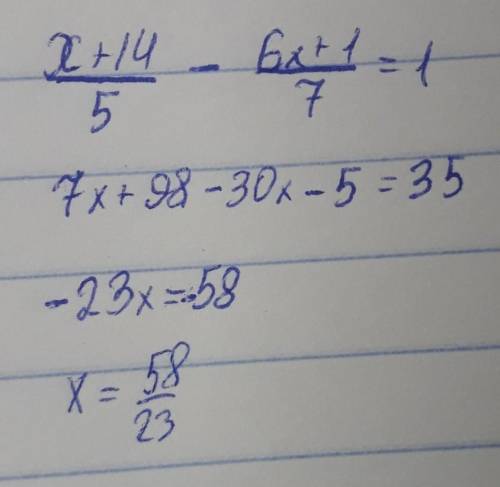 x+14/5 - 6x+1/7 = 1
7x+98-30x-5=35
-23x=-58
x = 58/23